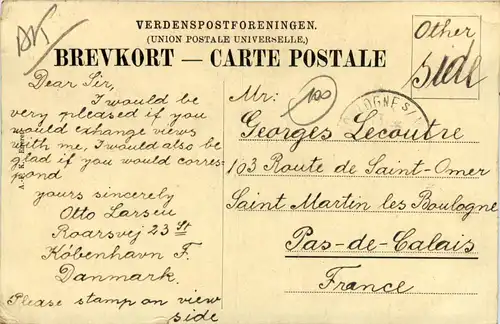 AK
VERDENSPOSTFORENINGEN.
(UNION POSTALE UNIVERSELLE,)
BREVKORT — CARTE POSTALE
Other
side
Dear Sir,
I would be
very pleased if you
would exchange views
with me, I would also be
glad if you would corres-
pond
yours sincerely
Otto Larsen
Roarsvej 23 St
København F.
Danmark.
Please stamp on view
side
Mr:
100
Georges Lecoutre
103 Route de Saint-Omer
Saint Martin les Boulogne
Pas-de-Calais
France